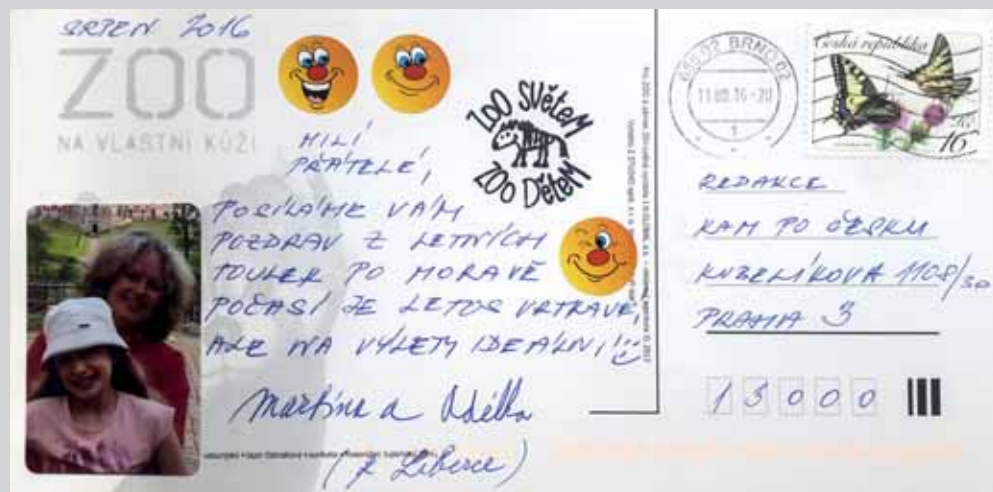 SRPEN 2016
ZOO
NA VLASTNÍ KŮŽI
ZOO SVĚTEM
ZOO DĚTEM
MILÍ
PŘÁTELÉ,
POSÍLÁME VÁM
POZDRAV Z LETNÍCH
TOULEK PO MORAVĚ
POČASÍ JE LETOS VRTKAVÉ,
ALE NA VÝLETY IDEÁLNÍ!
Martina a Adélka
(z Liberce)
BRNO 02
1
Česká republika
Kč
16
REDAKCE
KAM PO ČESKU
KUBELÍKOVA 1108/30
PRAHA 3
13000